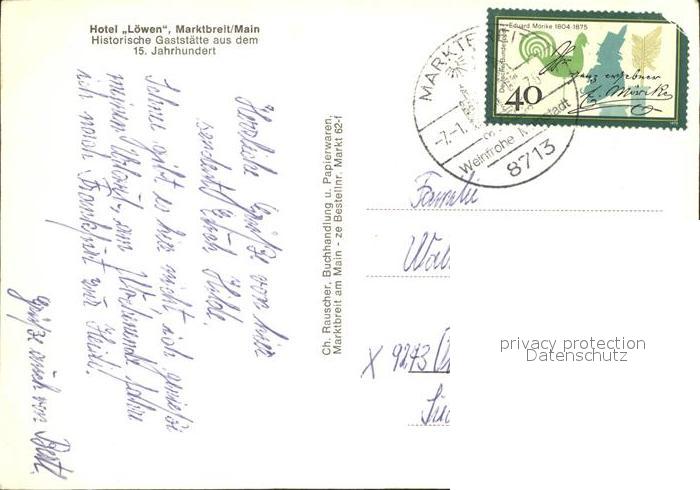 Hotel „Löwen", Marktbreit/Main
Historische Gaststätte aus dem
15. Jahrhundert
Herzliche Grüße von hier
sendet Euch Hilde.
Schnee gibt es hier nicht, ich genieße
meinen Urlaub, am Wochenende fahre
ich nach Frankfurt zur Heidi.
Grüße auch von Bert
Ch. Rauscher, Buchhandlung u. Papierwaren,
Marktbreit am Main - ze Bestellnr. Markt 62-f
Eduard Mörike 1804-1875
Deutsche Bundespost
40
ganz ergebner
E. Mörike
MARKTBREIT
-7.-1.
Weinfrohe
8713
Familie
X
privacy protection
Datenschutz